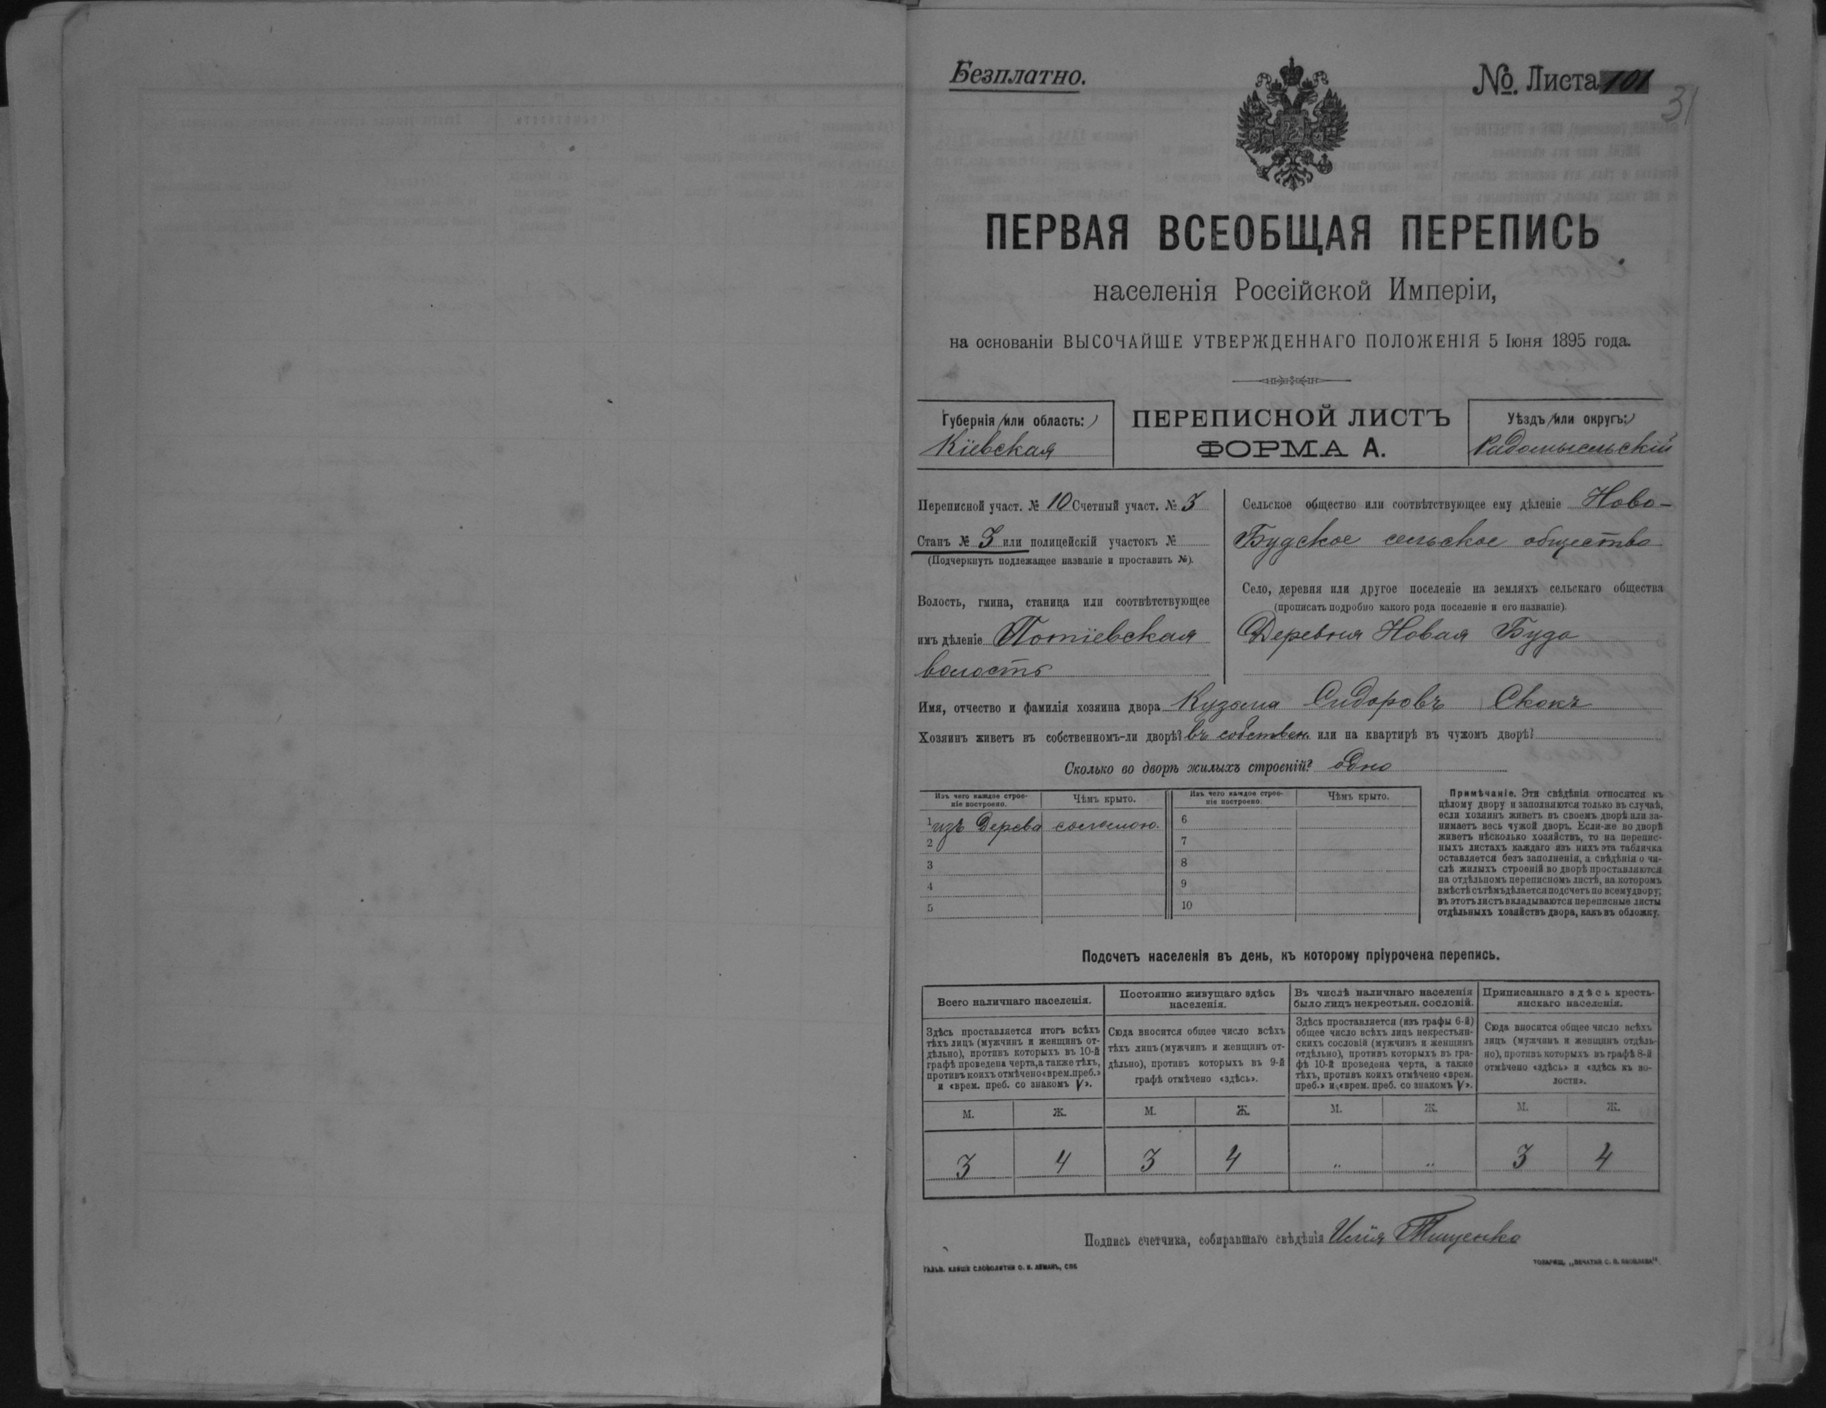 Безплатно.
№. Листа 101
31
ПЕРВАЯ ВСЕОБЩАЯ ПЕРЕПИСЬ
населенія Россійской Имперіи,
на основаніи ВЫСОЧАЙШЕ УТВЕРЖДЕННАГО ПОЛОЖЕНІЯ 5 Іюня 1895 года.
Губернія (или область:)
Кіевская
ПЕРЕПИСНОЙ ЛИСТЪ
ФОРМА А.
Уѣздъ (или округъ:)
Радомысльскій
Переписной участ. № 10 Счетный участ. № 3
Станъ № 3 или полицейскій участокъ №
(Подчеркнуть подлежащее названіе и проставить №).
Волость, гмина, станица или соотвѣтствующее
имъ дѣленіе Потіевская
волость
Сельское общество или соотвѣтствующее ему дѣленіе Ново-
Будское сельское общество
Село, деревня или другое поселеніе на земляхъ сельскаго общества
(прописать подробно какого рода поселеніе и его названіе).
Деревня Новая Буда
Имя, отчество и фамилія хозяина двора Кузьма Сидоровъ Скокъ
Хозяинъ живетъ въ собственномъ-ли дворѣ? въ собствен. или на квартирѣ въ чужомъ дворѣ?
Сколько во дворѣ жилыхъ строеній? одно
Изъ чего каждое строе-
ніе построено.
Чѣмъ крыто.
Изъ чего каждое строе-
ніе построено.
Чѣмъ крыто.
1 изъ дерева соломою.
2
3
4
5
6
7
8
9
10
Примѣчаніе. Эти свѣдѣнія относятся къ
цѣлому двору и заполняются только въ случаѣ,
если хозяинъ живетъ въ своемъ дворѣ или за-
нимаетъ весь чужой дворъ. Если-же во дворѣ
живетъ нѣсколько хозяйствъ, то на перепис-
ныхъ листахъ каждаго изъ нихъ эта табличка
оставляется безъ заполненія, а свѣдѣнія о чи-
слѣ жилыхъ строеній во дворѣ проставляются
на отдѣльномъ переписномъ листѣ, на которомъ
вмѣстѣ съ тѣмъ дѣлается подсчетъ по всему двору;
въ этотъ листъ вкладываются переписные листы
отдѣльныхъ хозяйствъ двора, какъ въ обложку.
Подсчетъ населенія въ день, къ которому пріурочена перепись.
Всего наличнаго населенія.
Здѣсь проставляется итогъ всѣхъ
тѣхъ лицъ (мужчинъ и женщинъ от-
дѣльно), противъ которыхъ въ 10-й
графѣ проведена черта, а также тѣхъ,
противъ коихъ отмѣчено «врем. преб.»
и «врем. преб. со знакомъ V».
Постоянно живущаго здѣсь
населенія.
Сюда вносится общее число всѣхъ
тѣхъ лицъ (мужчинъ и женщинъ от-
дѣльно), противъ которыхъ въ 9-й
графѣ отмѣчено «здѣсь».
Въ числѣ наличнаго населенія
было лицъ некрестьян. сословій.
Здѣсь проставляется (изъ графы 6-й)
общее число всѣхъ лицъ некрестьян-
скихъ сословій (мужчинъ и женщинъ
отдѣльно), противъ которыхъ въ гра-
фѣ 10-й проведена черта, а также
тѣхъ, противъ коихъ отмѣчено «врем.
преб.» и «врем. преб. со знакомъ V».
Приписаннаго здѣсь кресть-
янскаго населенія.
Сюда вносится общее число всѣхъ
лицъ (мужчинъ и женщинъ отдѣль-
но), противъ которыхъ въ графѣ 8-й
отмѣчено «здѣсь» и «здѣсь къ во-
лости».
М. Ж. М. Ж. М. Ж. М. Ж.
3 4 3 4 „ „ 3 4
Подпись счетчика, собиравшаго свѣдѣнія Илія Тищенко
ГАЛЬВ. КЛИШЕ СЛОВОЛИТНИ О. И. ЛЕМАНЪ, СПБ
ТОВАРИЩ. „ПЕЧАТНЯ С. П. ЯКОВЛЕВА".